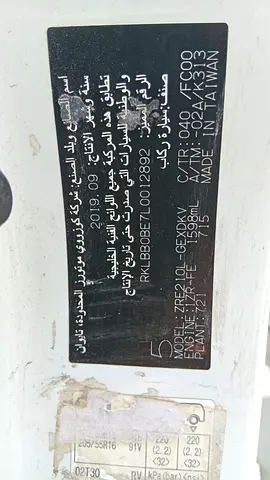 اسم الصانع وبلد الصنع: شركة كوزرووي موتورز المحدودة، تايوان
سنة وشهر الانتاج: 2019.09
تطابق هذه المركبة جميع اللوائح الفنية الخليجية
والوطنية للسيارات التي صدرت حتى تاريخ الانتاج
الرقم المميز: RKLBB0BE7L0012892
صنف: سيارة ركاب
5
MODEL: ZRE210L-GEXDKV C/TR: 040 /FC00
ENGINE: 1ZR-FE 1598mL A/TM: -02A/K313
PLANT: 721 715 MADE IN TAIWAN
205/55R16 91V 220 (2.2) <32> 220 (2.2) <32>
02T30 RV kPa(bar)<psi>